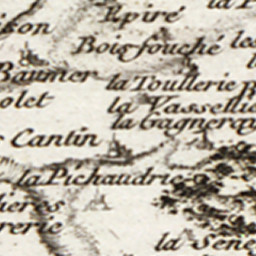 Epiré
Bois fouché
Baumer
la Toullerie
olet
la Vassellie
la Gagneray
Cantin
la Pichaudrie
hers
rerie
la Sene